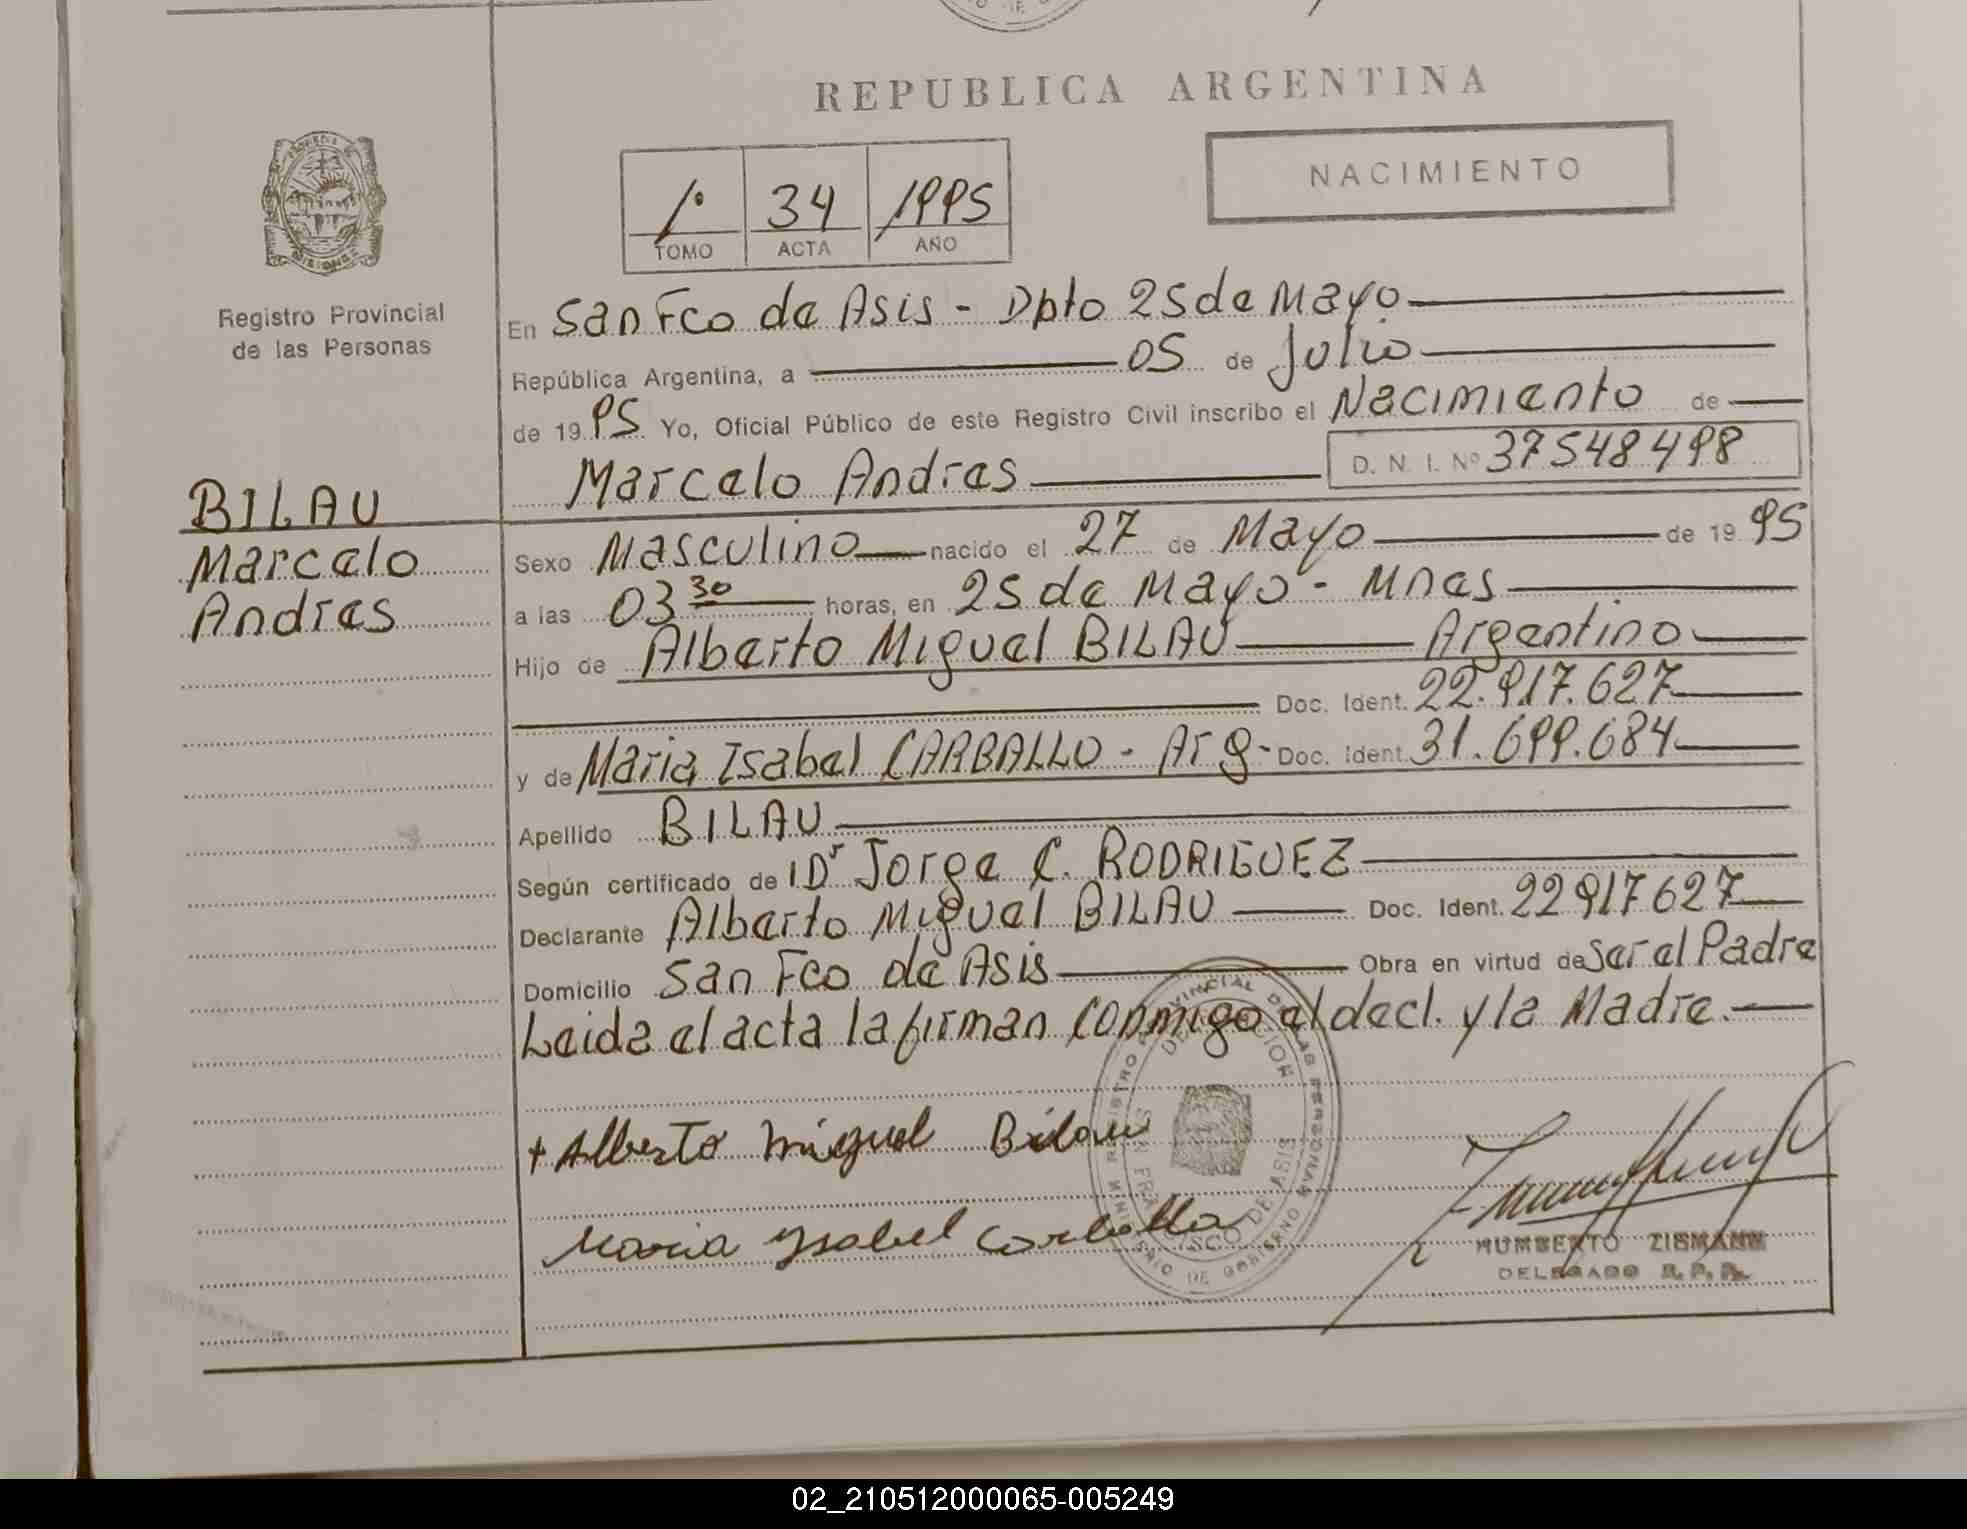 REPUBLICA ARGENTINA
NACIMIENTO
1º 34 1995
TOMO ACTA AÑO
Registro Provincial
de las Personas
BILAU
Marcelo
Andres
En San Fco de Asis - Dpto 25 de Mayo
República Argentina, a 05 de Julio
de 1995 Yo, Oficial Público de este Registro Civil inscribo el Nacimiento de
Marcelo Andres D. N. I. Nº 37548498
Sexo Masculino nacido el 27 de Mayo de 1995
a las 03 30 horas, en 25 de Mayo - Mnes
Hijo de Alberto Miguel BILAU Argentino
Doc. Ident. 22.917.627
y de Maria Isabel CARBALLO - Arg - Doc. Ident. 31.699.684
Apellido BILAU
Según certificado de Dr Jorge C. RODRIGUEZ
Declarante Alberto Miguel BILAU Doc. Ident. 22917627
Domicilio San Fco de Asis Obra en virtud de ser el Padre
Leida el acta la firman conmigo el decl. y la Madre.
+ Alberto Miguel Bilau
Maria Ysabel Carballo
HUMBERTO ZIEMANN
DELEGADO R.P.P.
REGISTRO PROVINCIAL DE LAS PERSONAS
MINISTERIO DE GOBIERNO
SAN FRANCISCO DE ASIS
02_210512000065-005249